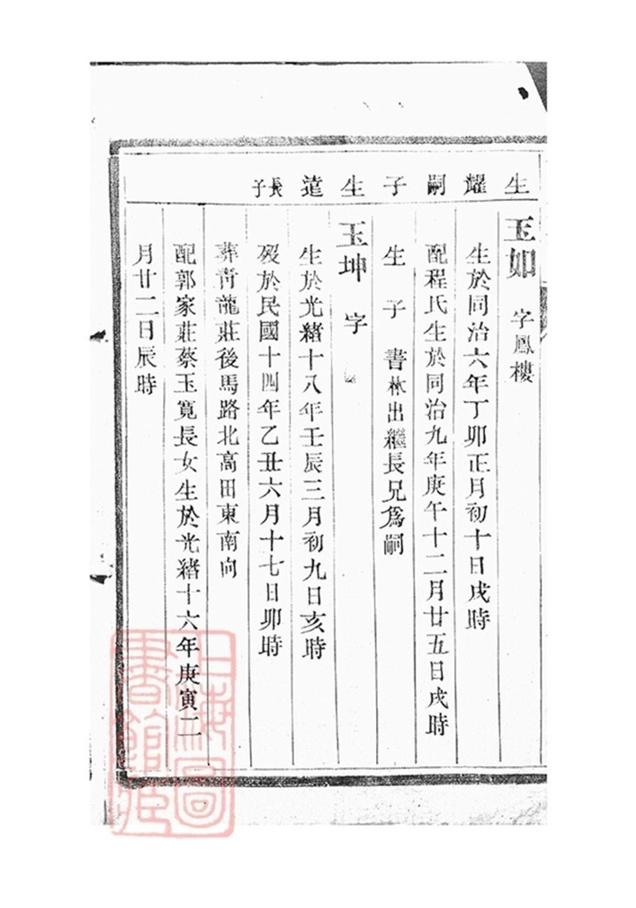 生 耀 嗣 子 生 達 長子
玉如 字鳳樓
生於同治六年丁卯正月初十日戌時
配程氏生於同治九年庚午十二月廿五日戌時
生子 書林出繼長兄為嗣
玉坤 字
生於光緒十八年壬辰三月初九日亥時
歿於民國十四年乙丑六月十七日卯時
葬青龍莊後馬路北高田東南向
配郭家莊蔡玉寬長女生於光緒十六年庚寅二
月廿二日辰時
上海圖
書館藏